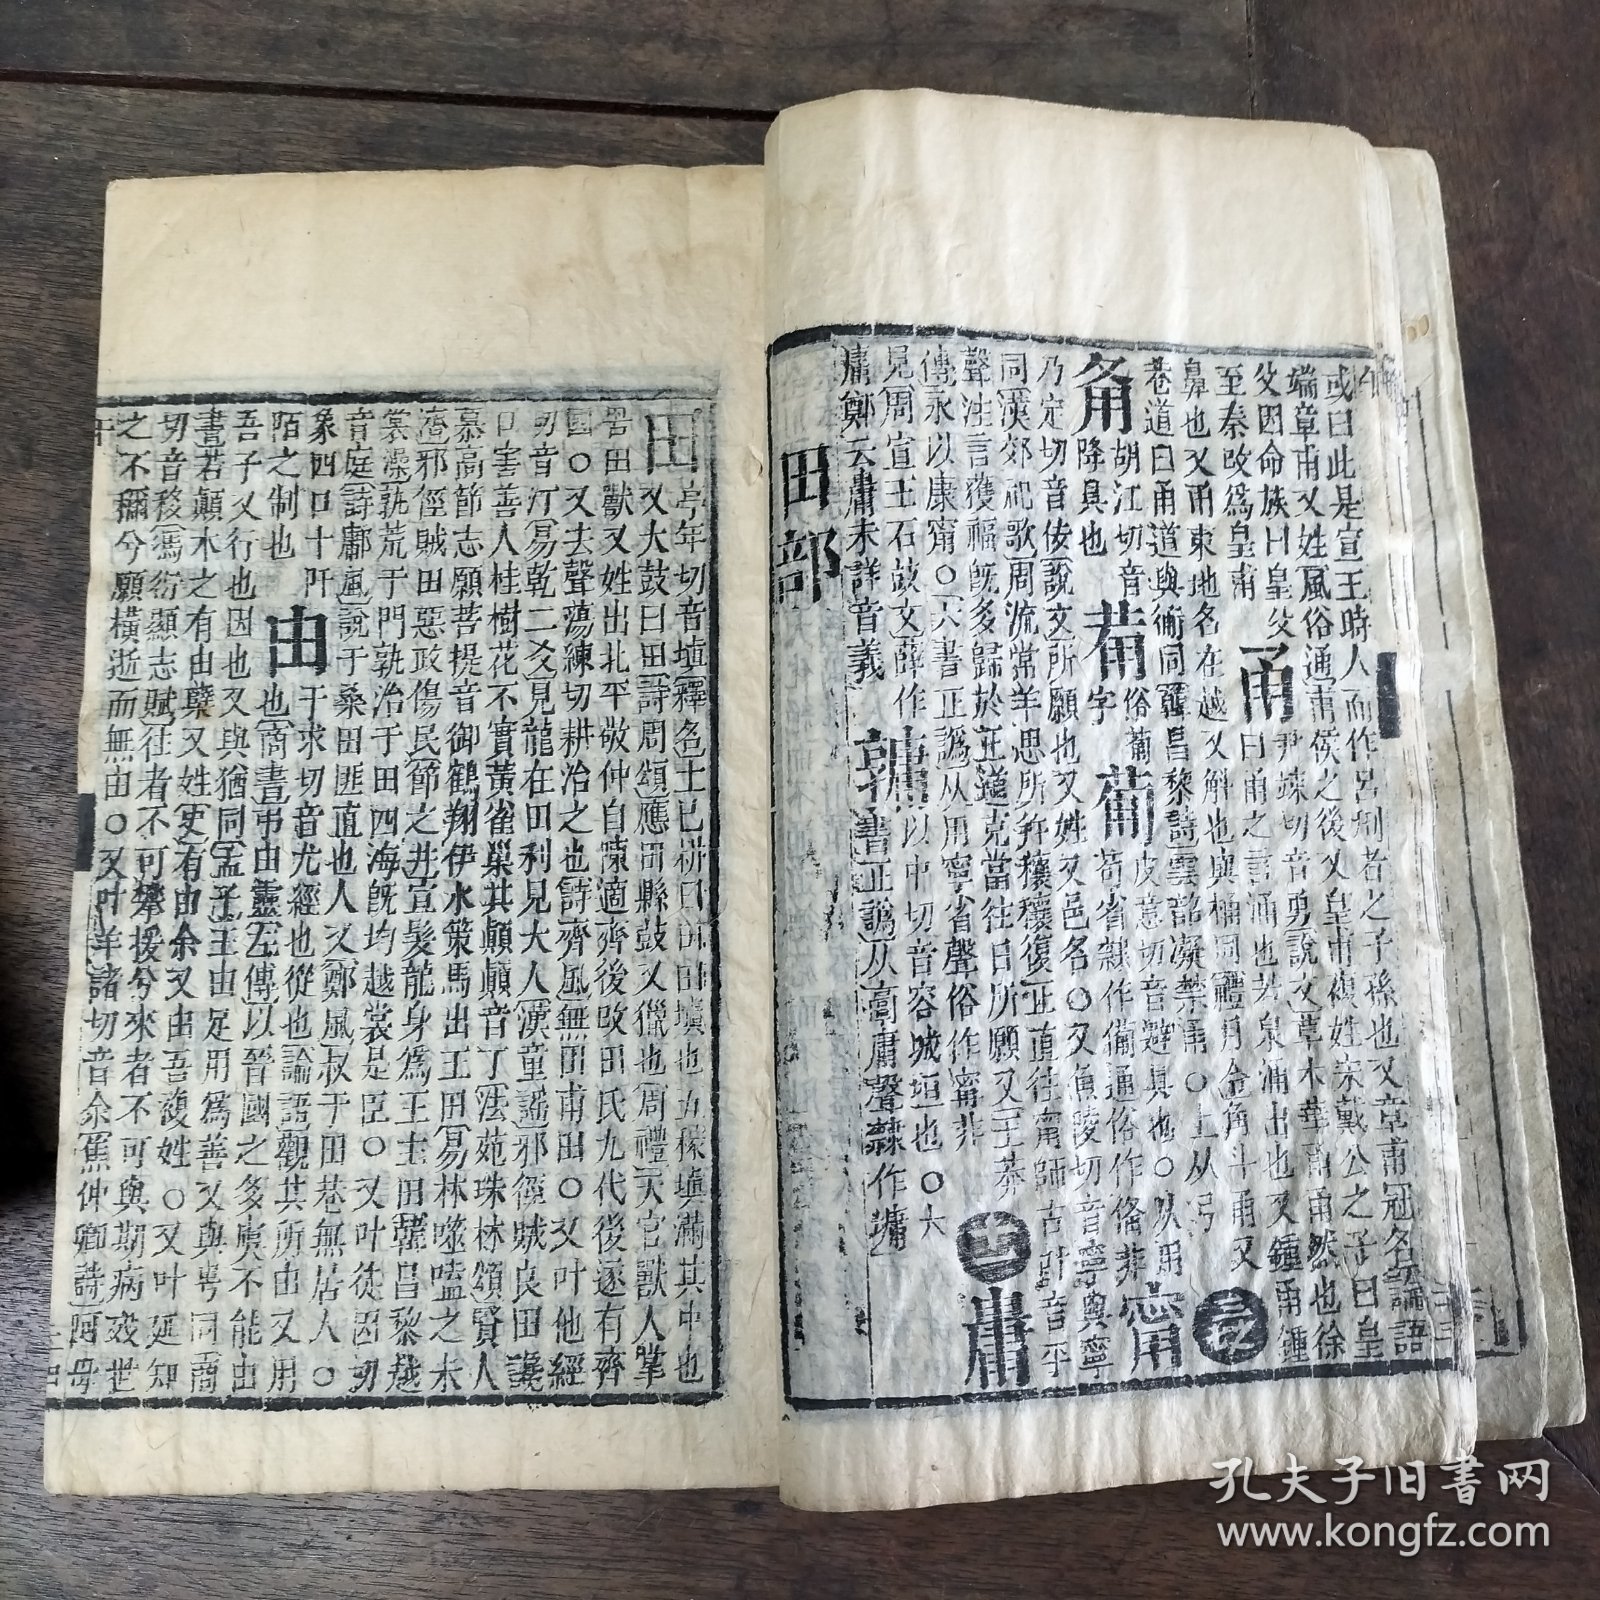 或曰此是宣王時人而作呂刑者之子孫也又章甫冠名論語
端章甫又姓風俗通甫侯之後又皇甫複姓宋戴公之子曰皇
父因命族曰皇父
至秦改爲皇甫
甬
尹竦切音勇說文草木華甬甬然也徐
曰甬之言涌也若泉涌出也又鍾甬鍾
鼻也又甬東地名在越又斛也與桶同禮月令角斗甬又
巷道曰甬道與術同韓昌黎詩雲韶凝禁甬○上从𢎘
胡江切音
降具也
葡
俗葡
字
𤰈
皮意切音避具也○从用
苟省隸作備通俗作俻非
甯
乃定切音佞說文所願也又姓又邑名○又魚陵切音寧與寧
同漢郊祀歌周流常羊思所幷穰穰復正直往甯師古叶音平
聲注言獲福旣多歸於正道克當往日所願又王莽
傳永以康甯○六書正譌从用寧省聲俗作甯非
庸
見周宣王石鼓文薛作
庸鄭云庸未詳音義
以中切音容城垣也○六
書正譌从𩫖庸聲隸作墉
田部
田
亭年切音塡釋名土已耕曰田田塡也五稼塡滿其中也
又大鼓曰田詩周頌應田縣鼓又獵也周禮天官獸人掌
罟田獸又姓出北平敬仲自陳適齊後改田氏九代後遂有齊
國○又去聲蕩練切耕治之也詩齊風無田甫田○又叶他經
切音汀易乾二爻見龍在田利見大人漢童謠邪徑賊良田讒
口害善人桂樹花不實黃雀巢其顛顛音丁法苑珠林頌賢人
慕高節志願菩提音御鶴翔伊水策馬出王田易林噬嗑之未
濟邪徑賊田惡政傷民節之井宣髮龍身爲王主田韓昌黎越
裳操孰荒于門孰治于田四海旣均越裳是臣○又叶徒因切
音庭詩鄘風說于桑田匪直也人又鄭風叔于田巷無居人○
象四口十阡
陌之制也
由
于求切音尤經也從也論語觀其所由又用
也商書弔由靈左傳以晉國之多虞不能由
吾子又行也因也又與猶同孟子王由足用爲善又與甹同商
書若顛木之有由櫱又姓史有由余又由吾複姓○又叶延知
切音移馮衍顯志賦往者不可攀援兮來者不可與期病歿世
之不稱兮願橫逝而無由○又叶羊諸切音余焦仲卿詩阿母
孔夫子旧書网
www.kongfz.com